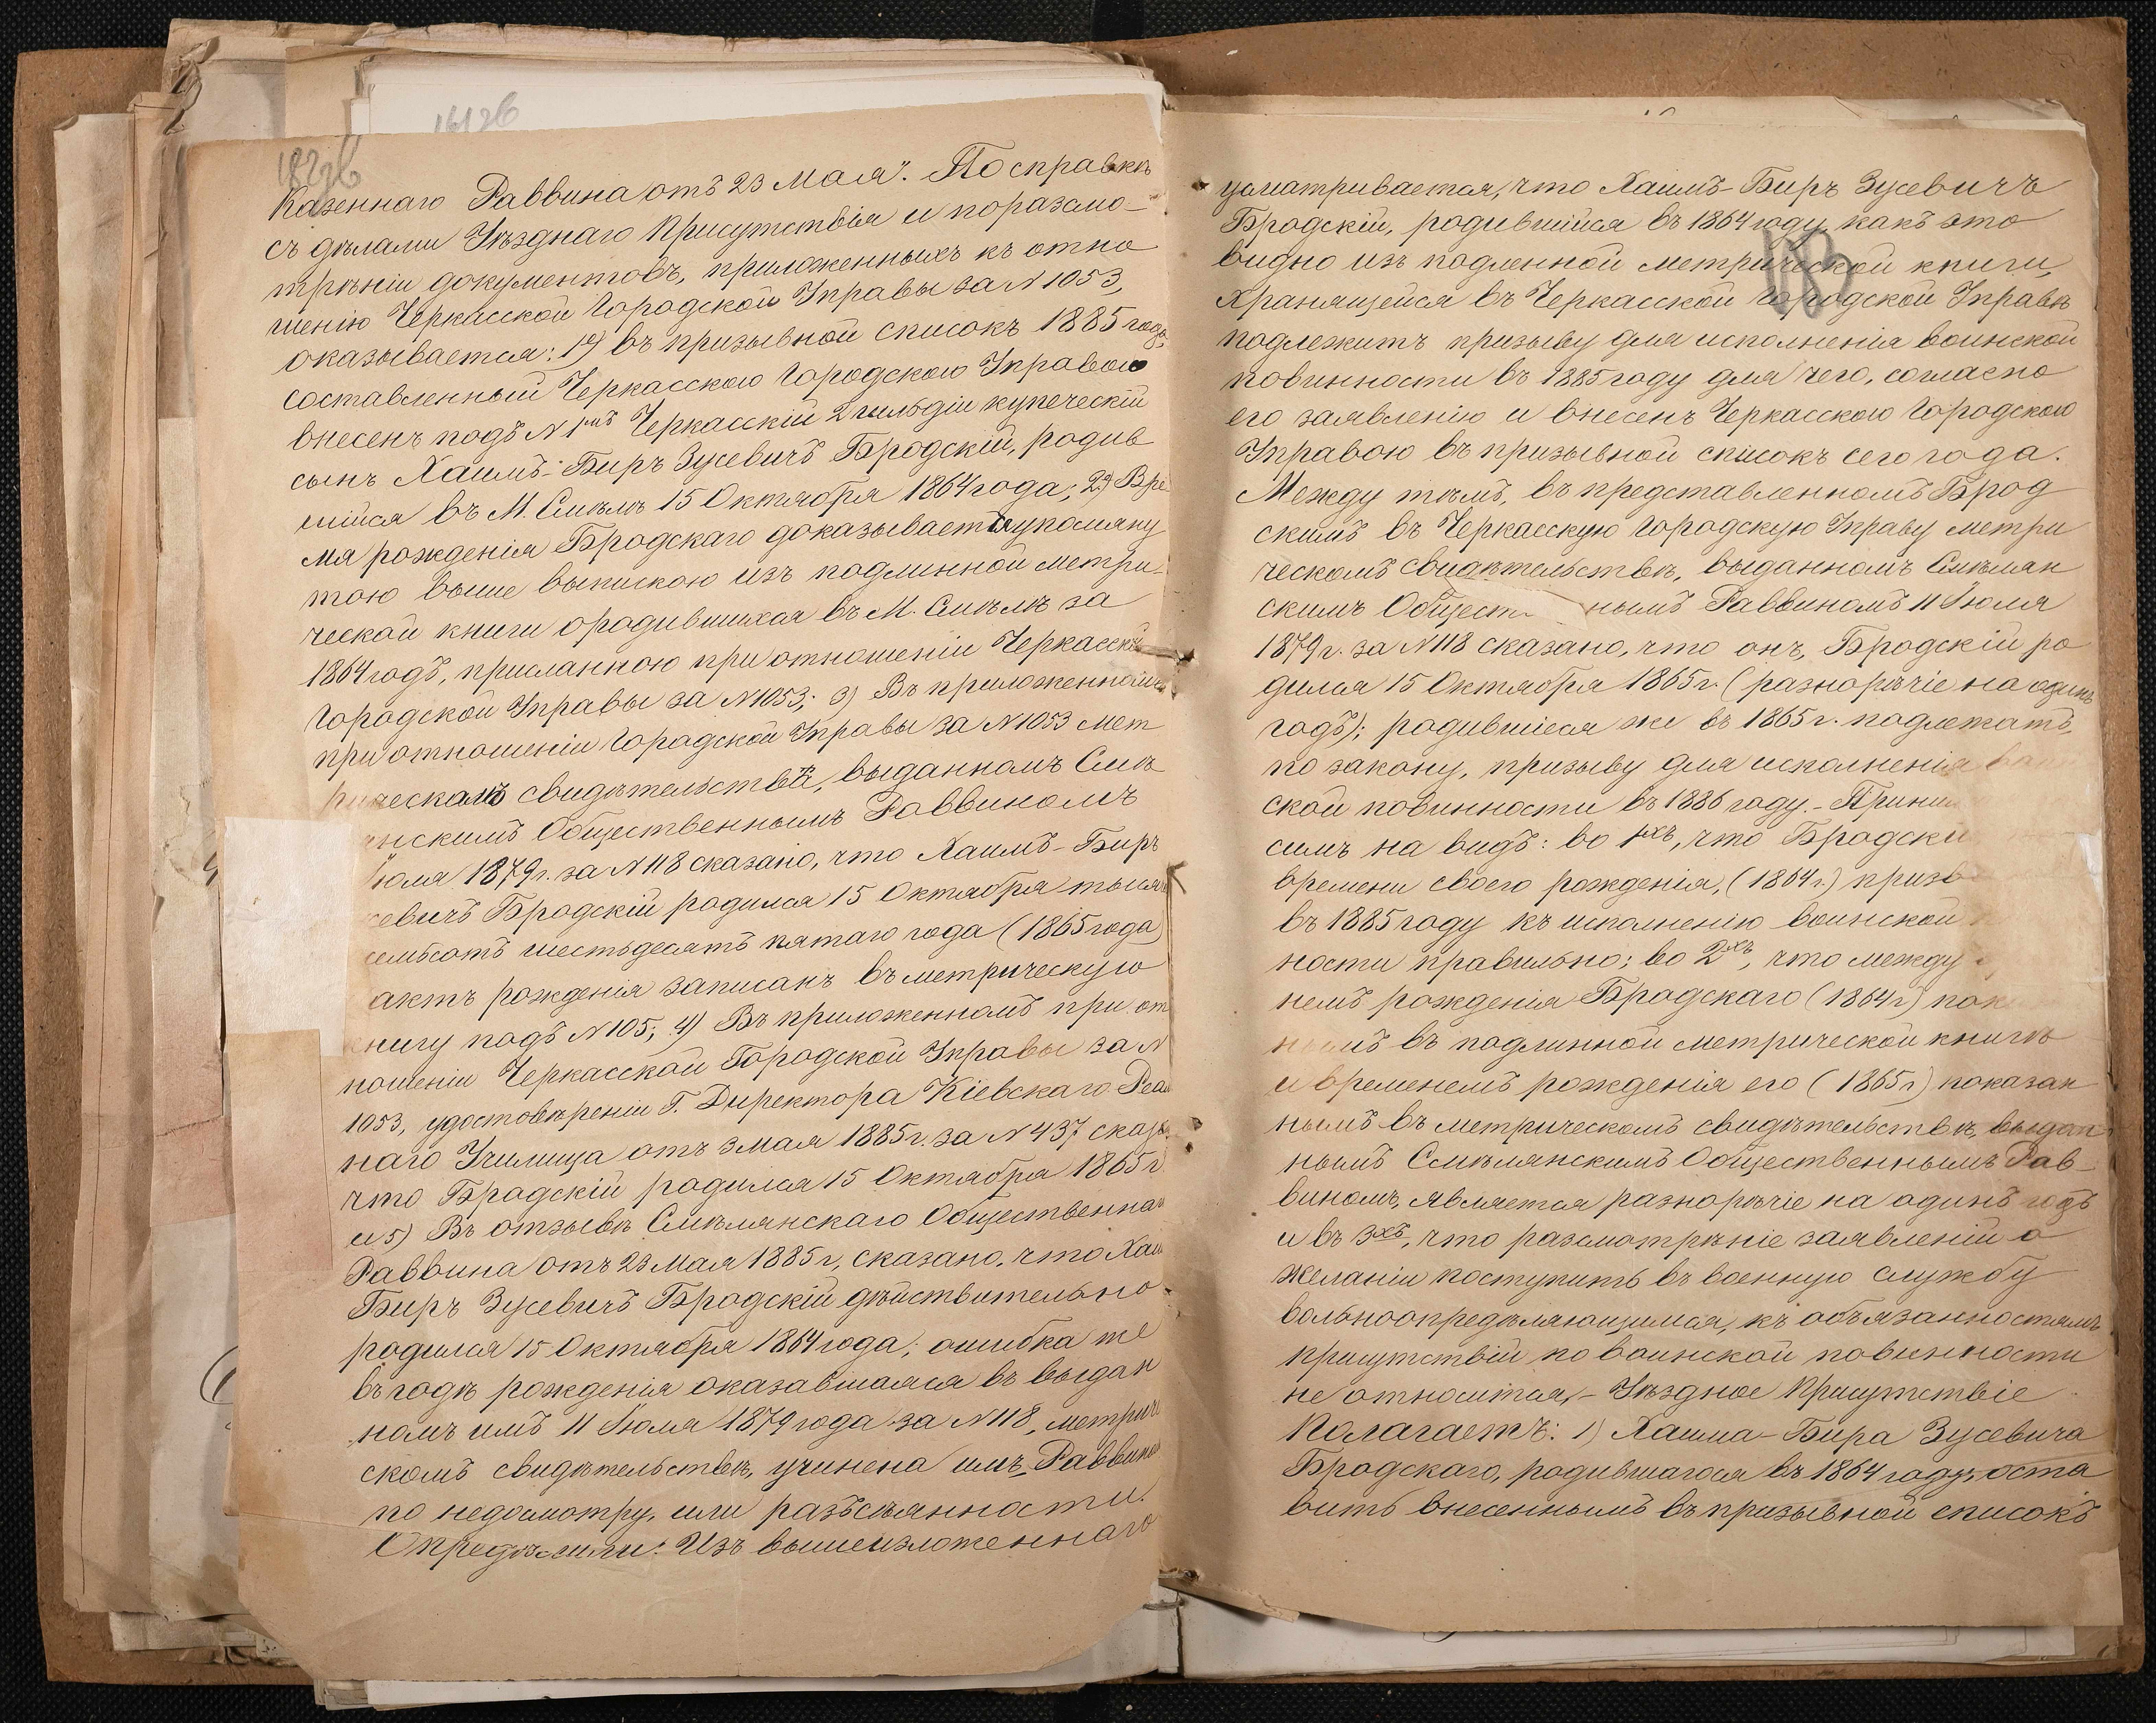 Казеннаго Раввина отъ 23 Мая". По справкѣ
съ дѣлами Уѣзднаго Присутствія и по разсмо-
трѣніи документовъ, приложенныхъ къ отно
шенію Черкасской Городской Управы за N 1053,
оказывается: 1) въ призывной списокъ 1885 года,
составленный Черкасскою Городскою Управою
внесенъ подъ N 1мъ Черкасскій 2 гильдіи купеческій
сынъ Хаимъ-Биръ Зусевичъ Бродскій, родив
шійся въ М. Смѣлѣ 15 Октября 1864 года; 2) Вре
мя рожденія Бродскаго доказывается упомяну
тою выше выпискою изъ подлинной метри-
ческой книги о родившихся въ М. Смѣлѣ за
1864 годъ, присланною при отношеніи Черкасской
Городской Управы за N 1053; 3) Въ приложенномъ
при отношеніи Городской Управы за N 1053 мет
рическомъ свидѣтельствѣ, выданномъ Смѣ
нскимъ Общественнымъ Раввиномъ
Іюля 1879 г. за N 118 сказано, что Хаимъ-Биръ
севичъ Бродскій родился 15 Октября тысяч
семьсотъ шестьдесятъ пятаго года (1865 года)
актъ рожденія записанъ въ метрическую
книгу подъ N 105; 4) Въ приложенномъ при от
ношеніи Черкасской Городской Управы за N
1053, удостовѣреніи Г. Директора Кіевскаго Реал
наго Училища отъ 3 мая 1885 г. за N 437 сказ.
что Бродскій родился 15 Октября 1865 г.
и 5) Въ отзывѣ Смѣлянскаго Общественнаг
Раввина отъ 23 Мая 1885 г, сказано, что Хаи
Биръ Зусевичъ Бродскій дѣйствительно
родился 15 Октября 1864 года; ошибка же
въ годѣ рожденія оказавшаяся въ выдан
номъ имъ 11 Іюля 1879 года за N 118, метриче
скомъ свидѣтельствѣ, учинена имъ, Раввино
по недосмотру, или разъсѣянности.
Опредѣлили: Изъ вышеизложеннаго
усматривается, что Хаимъ-Биръ Зусевичъ
Бродскій, родившійся въ 1864 году, какъ это
видно изъ подленной метрической книги,
хранящейся въ Черкасской Городской Управѣ
подлежитъ призыву для исполненія воинской
повинности въ 1885 году для чего, согласно
его заявленію и внесенъ Черкасскою Городскою
Управою въ призывной списокъ сего года.
Между тѣмъ, въ представленномъ Брод
скимъ въ Черкасскую Городскую Управу метри
ческомъ свидѣтельствѣ, выданномъ Смѣлян
скимъ Общест нымъ Раввиномъ 11 Іюля
1879 г. за N 118 сказано, что онъ, Бродскій ро
дился 15 Октября 1865 г. (разнорѣчіе на одинъ
годъ); родившіеся же въ 1865 г. подлежатъ,
по закону, призыву для исполненія воин
ской повинности въ 1886 году. - Прини
симъ на видъ: во 1хъ, что Бродскі
времени своего рожденія, (1864 г.) призв
въ 1885 году къ исполненію воинской
ности правильно; во 2хъ, что между
немъ рожденія Бродскаго (1864 г) пок
нымъ въ подлинной метрической книгѣ
и временемъ рожденія его (1865 г) показан
нымъ въ метрическомъ свидѣтельствѣ, выдан
нымъ Смѣлянскимъ Общественнымъ Рав-
виномъ, является разнорѣчіе на одинъ годъ
и въ 3хъ, что разсмотрѣніе заявленій о
желаніи поступить въ военную службу
вольноопредѣляющимся, къ объязанностямъ
присутствій по воинской повинности
не относится, - Уѣздное Присутствіе
Полагаетъ: 1) Хаима-Бира Зусевича
Бродскаго, родившагося въ 1864 году, оста
вить внесеннымъ въ призывной списокъ